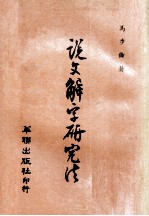 馬步倫著
說文解字研究法
華聯出版社印行